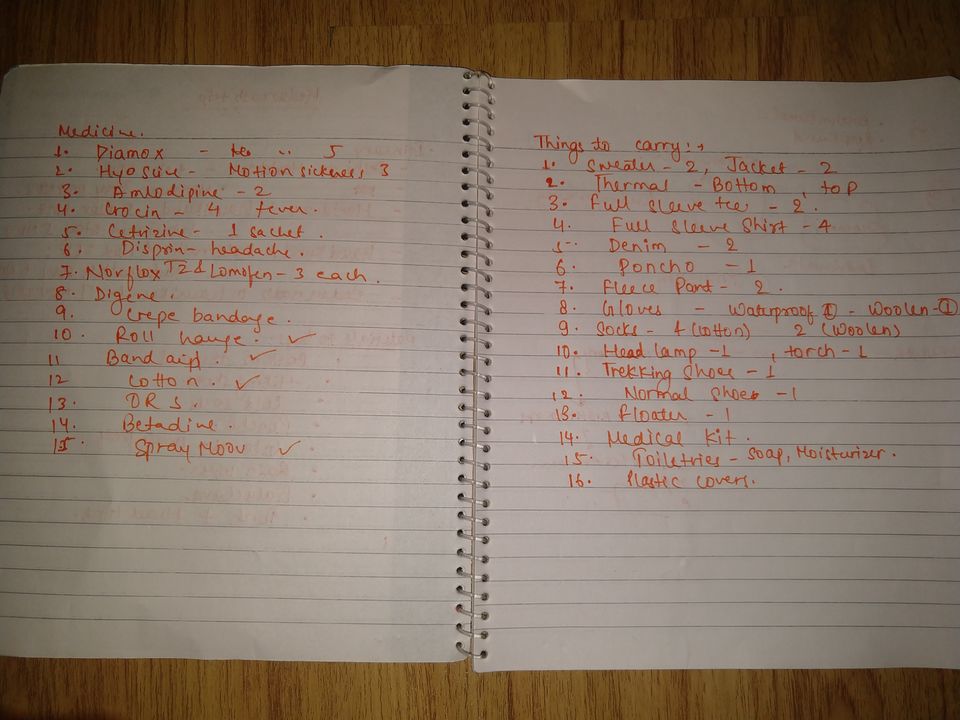 Medicine.
1. Diamox - 5
2. Hyoscine - Motion sickness 3
3. Amlodipine - 2
4. Crocin - 4 fever.
5. Cetrizine - 1 sachet.
6. Disprin - headache.
7. Norflox TZ & Lomofen - 3 each.
8. Digene.
9. Crepe bandage.
10. Roll ✓
11 Band aid. ✓
12 Cotton. ✓
13. ORS.
14. Betadine.
15. Spray Moov ✓
Things to carry:→
1. Sweater - 2, Jacket - 2
2. Thermal - Bottom, top
3. Full sleeve tee - 2.
4. Full Sleeve Shirt - 4
5. Denim - 2
6. Poncho - 1
7. Fleece Pant - 2.
8. Gloves - Waterproof ① - Woolen - ①
9. Socks - 4 (Cotton) 2 (Woolen)
10. Head lamp - 1, torch - 1
11. Trekking Shoes - 1
12. Normal Shoes - 1
13. Floater - 1
14. Medical Kit.
15. Toiletries - Soap, Moisturizer.
16. Plastic covers.